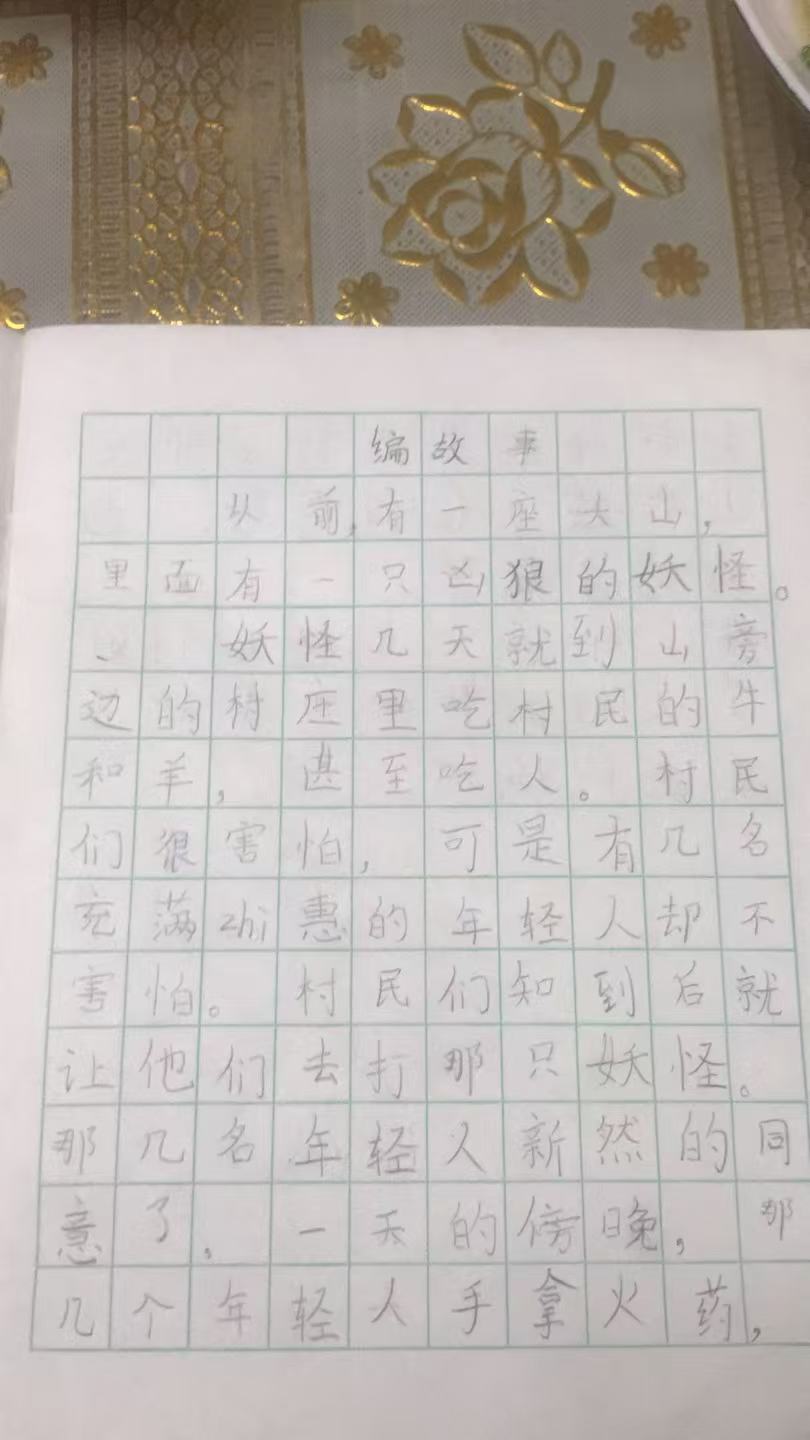 编故事
从前,有一座大山,
里面有一只凶狼的妖怪。
、妖怪几天就到山旁
边的村庄里吃村民的牛
和羊,甚至吃人。村民
们很害怕,可是有几名
充满zhi惠的年轻人却不
害怕。村民们知到后就
让他们去打那只妖怪。
那几名年轻人新然的同
意了。一天的傍晚,那
几个年轻人手拿火药,